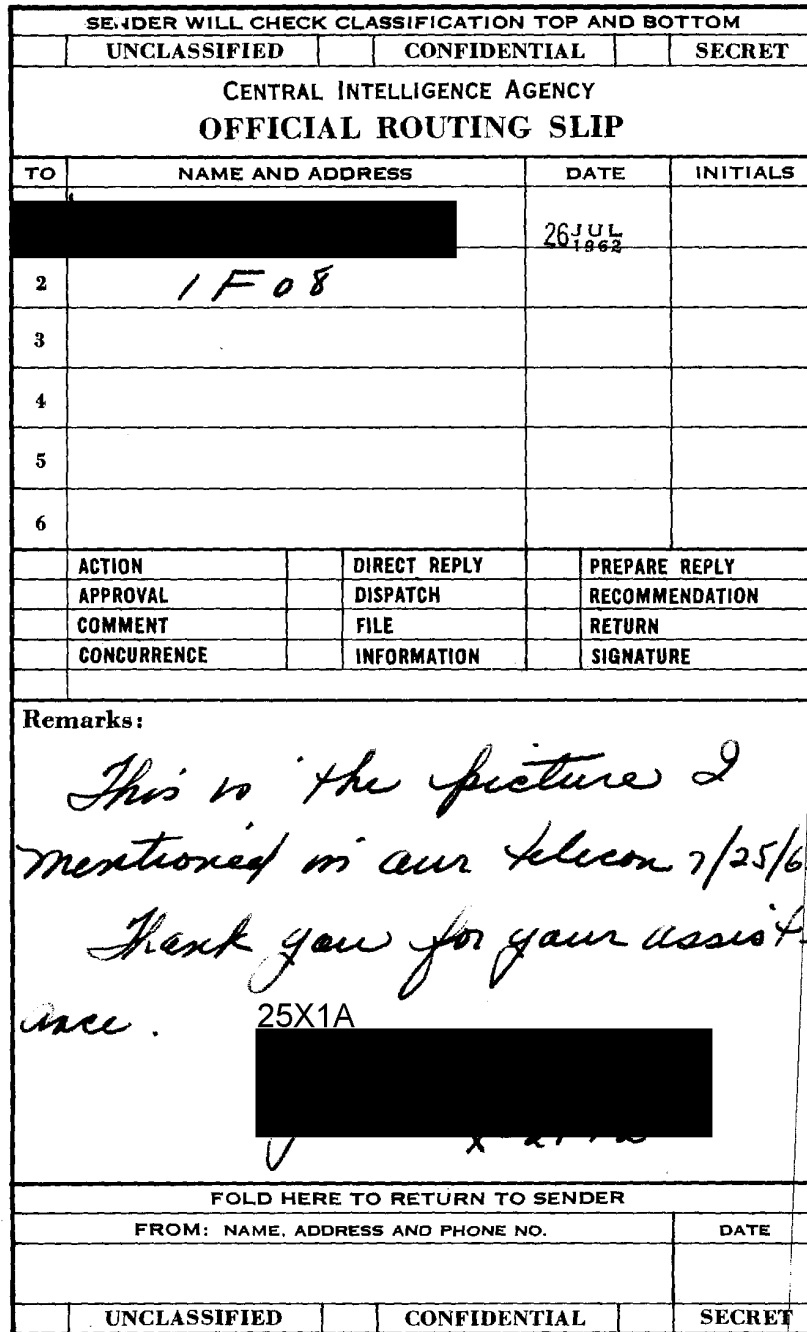 SENDER WILL CHECK CLASSIFICATION TOP AND BOTTOM
UNCLASSIFIED CONFIDENTIAL SECRET
CENTRAL INTELLIGENCE AGENCY
OFFICIAL ROUTING SLIP
TO NAME AND ADDRESS DATE INITIALS
26 JUL 1962
2 1F08
3
4
5
6
ACTION DIRECT REPLY PREPARE REPLY
APPROVAL DISPATCH RECOMMENDATION
COMMENT FILE RETURN
CONCURRENCE INFORMATION SIGNATURE
Remarks:
This is the picture I
mentioned in our telecon 7/25/6
Thank you for your assist-
ance. 25X1A
FOLD HERE TO RETURN TO SENDER
FROM: NAME, ADDRESS AND PHONE NO. DATE
UNCLASSIFIED CONFIDENTIAL SECRET